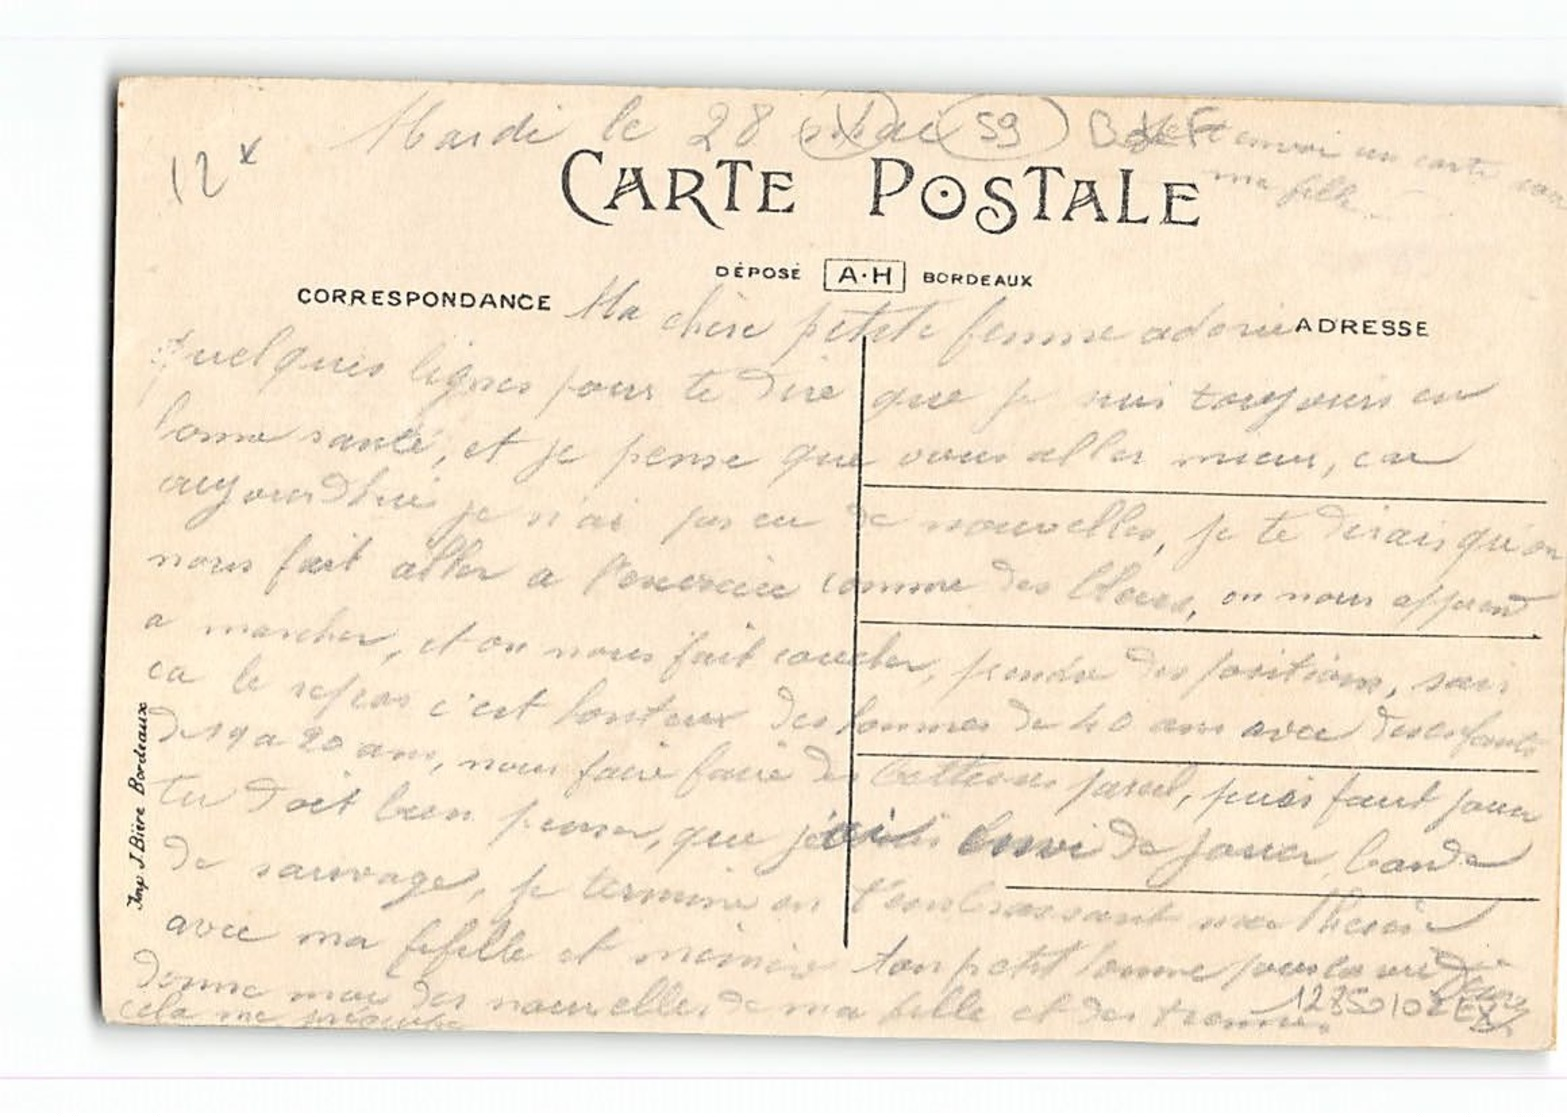 12 x
Mardi le 28 mai 59 B
envoi un carte
ma fille
CARTE POSTALE
DÉPOSÉ A·H BORDEAUX
CORRESPONDANCE
ADRESSE
Ma chère petite femme adorie
quelques lignes pour te dire que je suis toujours en
bonne santé, et je pense que vous aller mieux, car
aujourdhui je n'ai pas eu de nouvelles, je te dirais qu'on
nous fait aller a l'exercice comme des bleus, on nous apprend
a marcher, et on nous fait coucher, prendre des positions, sans
ca le repos c'est honteux des hommes de 40 ans avec des enfants
de 19 a 20 ans, nous faire faire des pareil, puis faut jouer
tu doit bien penser, que j'ai envi de jouer, bande
de sauvage, je termine en t'embrassant
avec ma fifille et mémère ton petit homme pour la vie
donne moi des nouvelles de ma fille et des
cela me préoccupe
1285010 EX
Imp J. Bière Bordeaux